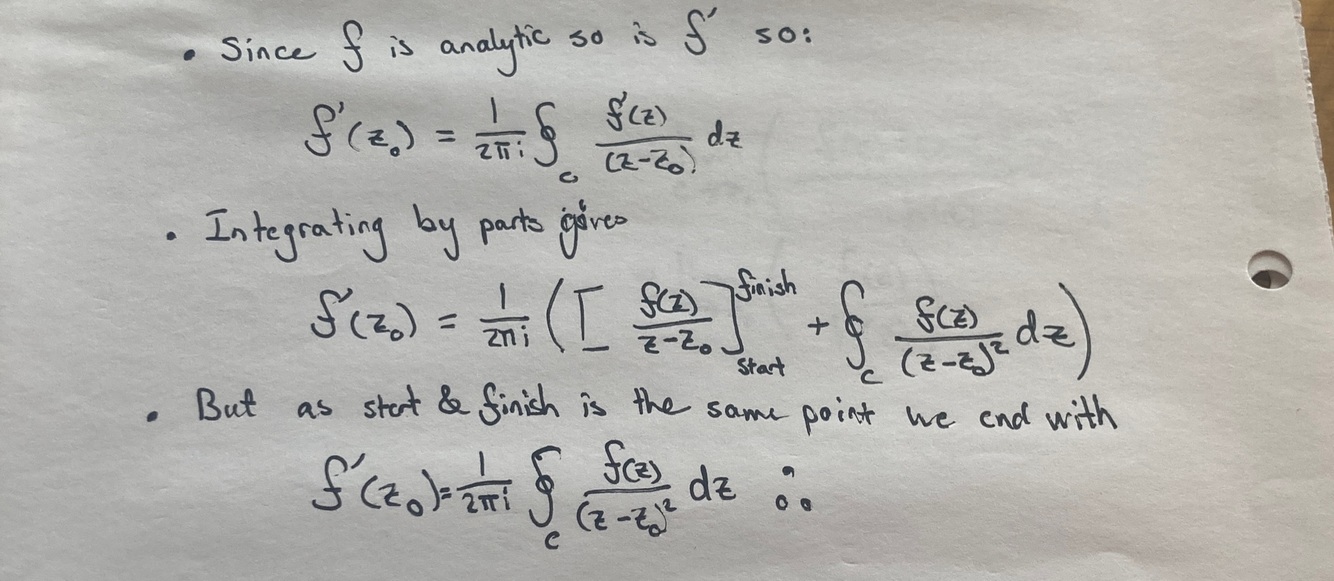 • Since f is analytic so is f′ so:
f′(z₀) = 1/2πi ∮_c f′(z)/(z-z₀) dz
• Integrating by parts gives
f′(z₀) = 1/2πi ([f(z)/z-z₀]^finish_start + ∮_c f(z)/(z-z₀)² dz)
• But as start & finish is the same point we end with
f′(z₀) = 1/2πi ∮_c f(z)/(z-z₀)² dz ∴